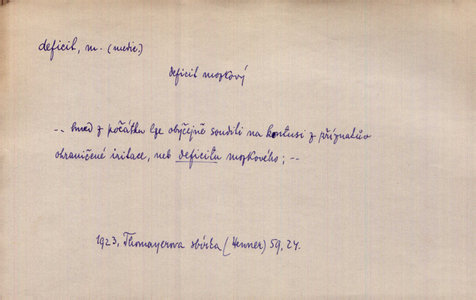 deficit, m. (medic.)
deficit mozkový
-- hned z počátku lze obyčejně souditi na kontusi z příznaků
ohraničené iritace, neb deficitu mozkového; --
1923, Thomayerova sbírka (Henner) 59, 24.